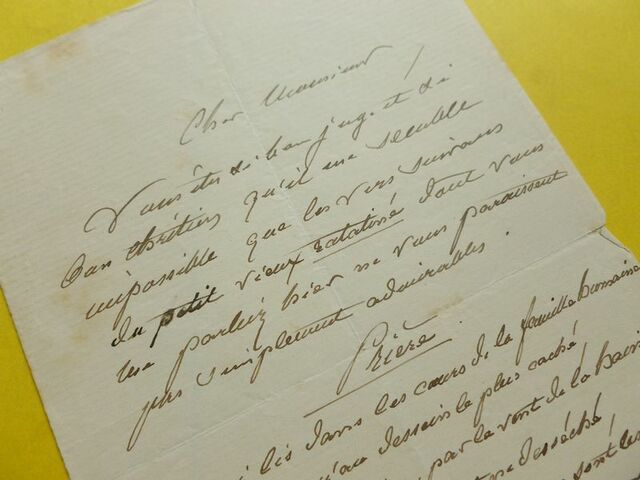 Cher Monsieur,
Vous êtes si bon juge et si
bon chrétien qu'il me semble
impossible que les vers suivans
du petit vieux ratatiné dont vous
me parliez hier ne vous paraissent
pas simplement admirables.
Prière
lis dans les cœurs de la famille humaine
qu'au dessein le plus caché,
par le vent de la
desséché,
sont les